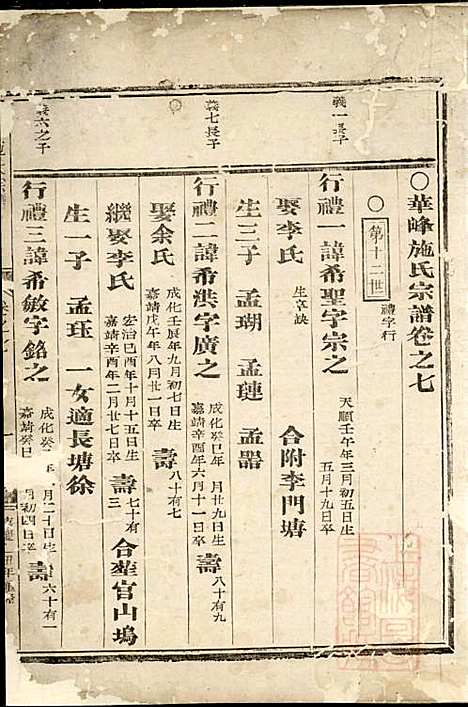 ○華峰施氏宗譜卷之七
○第十二世 禮字行
義一長子
行禮一諱希聖字宗之 天順壬午年三月初五日生 五月十九日卒
娶李氏 生卒缺 合附李門塘
生三子 孟瑚 孟璉 孟器
義七長子
行禮二諱希洪字廣之 成化癸巳年 月廿九日生 嘉靖辛酉年六月十一日卒 壽 八十有九
娶余氏 成化壬辰年九月初七日生 嘉靖戊午年八月廿一日卒 壽 八十有七
繼娶李氏 宏治己酉年十月十五日生 嘉靖辛酉年二月廿七日卒 壽 七十有三 合塟官山塢
生一子 孟珏 一女適長塘徐
義六之子
行禮三諱希敏字銘之 成化癸 月二十日生 嘉靖癸巳 月初四日卒 壽 六十有一